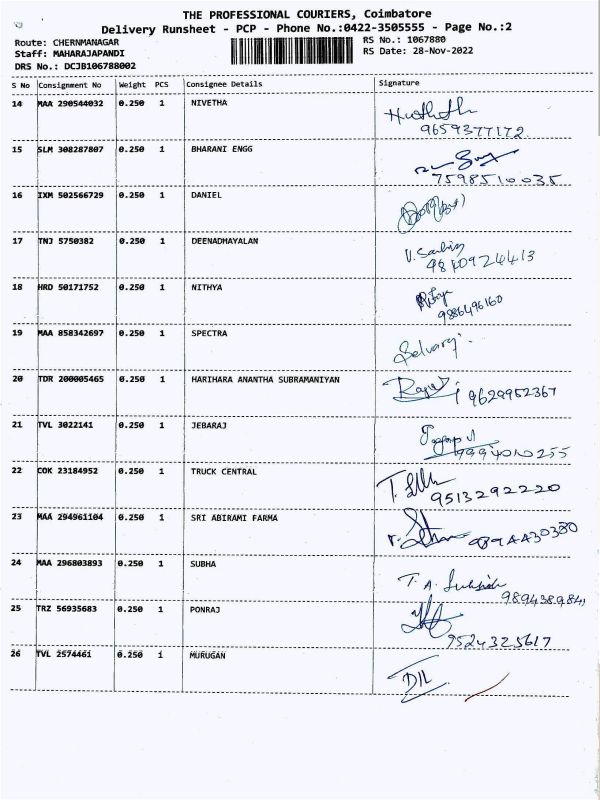 THE PROFESSIONAL COURIERS, Coimbatore
Delivery Runsheet - PCP - Phone No.:0422-3505555 - Page No.:2
Route: CHERNMANAGAR
RS No.: 1067880
Staff: MAHARAJAPANDI
RS Date: 28-Nov-2022
DRS No.: DCJB106788002
S No Consignment No Weight PCS Consignee Details Signature
14 MAA 290544032 0.250 1 NIVETHA
9659377172
15 SLM 308287807 0.250 1 BHARANI ENGG
7598510035
16 IXM 502566729 0.250 1 DANIEL
17 TNJ 5750382 0.250 1 DEENADHAYALAN
18 HRD 50171752 0.250 1 NITHYA
9886496160
19 MAA 858342697 0.250 1 SPECTRA
Selvaraj
20 TDR 200005465 0.250 1 HARIHARA ANANTHA SUBRAMANIYAN
9629952367
21 TVL 3022141 0.250 1 JEBARAJ
9994010255
22 COK 23184952 0.250 1 TRUCK CENTRAL
9513292220
23 MAA 294961104 0.250 1 SRI ABIRAMI FARMA
24 MAA 296803893 0.250 1 SUBHA
T. A.
9894389841
25 TRZ 56935683 0.250 1 PONRAJ
9524325617
26 TVL 2574461 0.250 1 MURUGAN
D/L